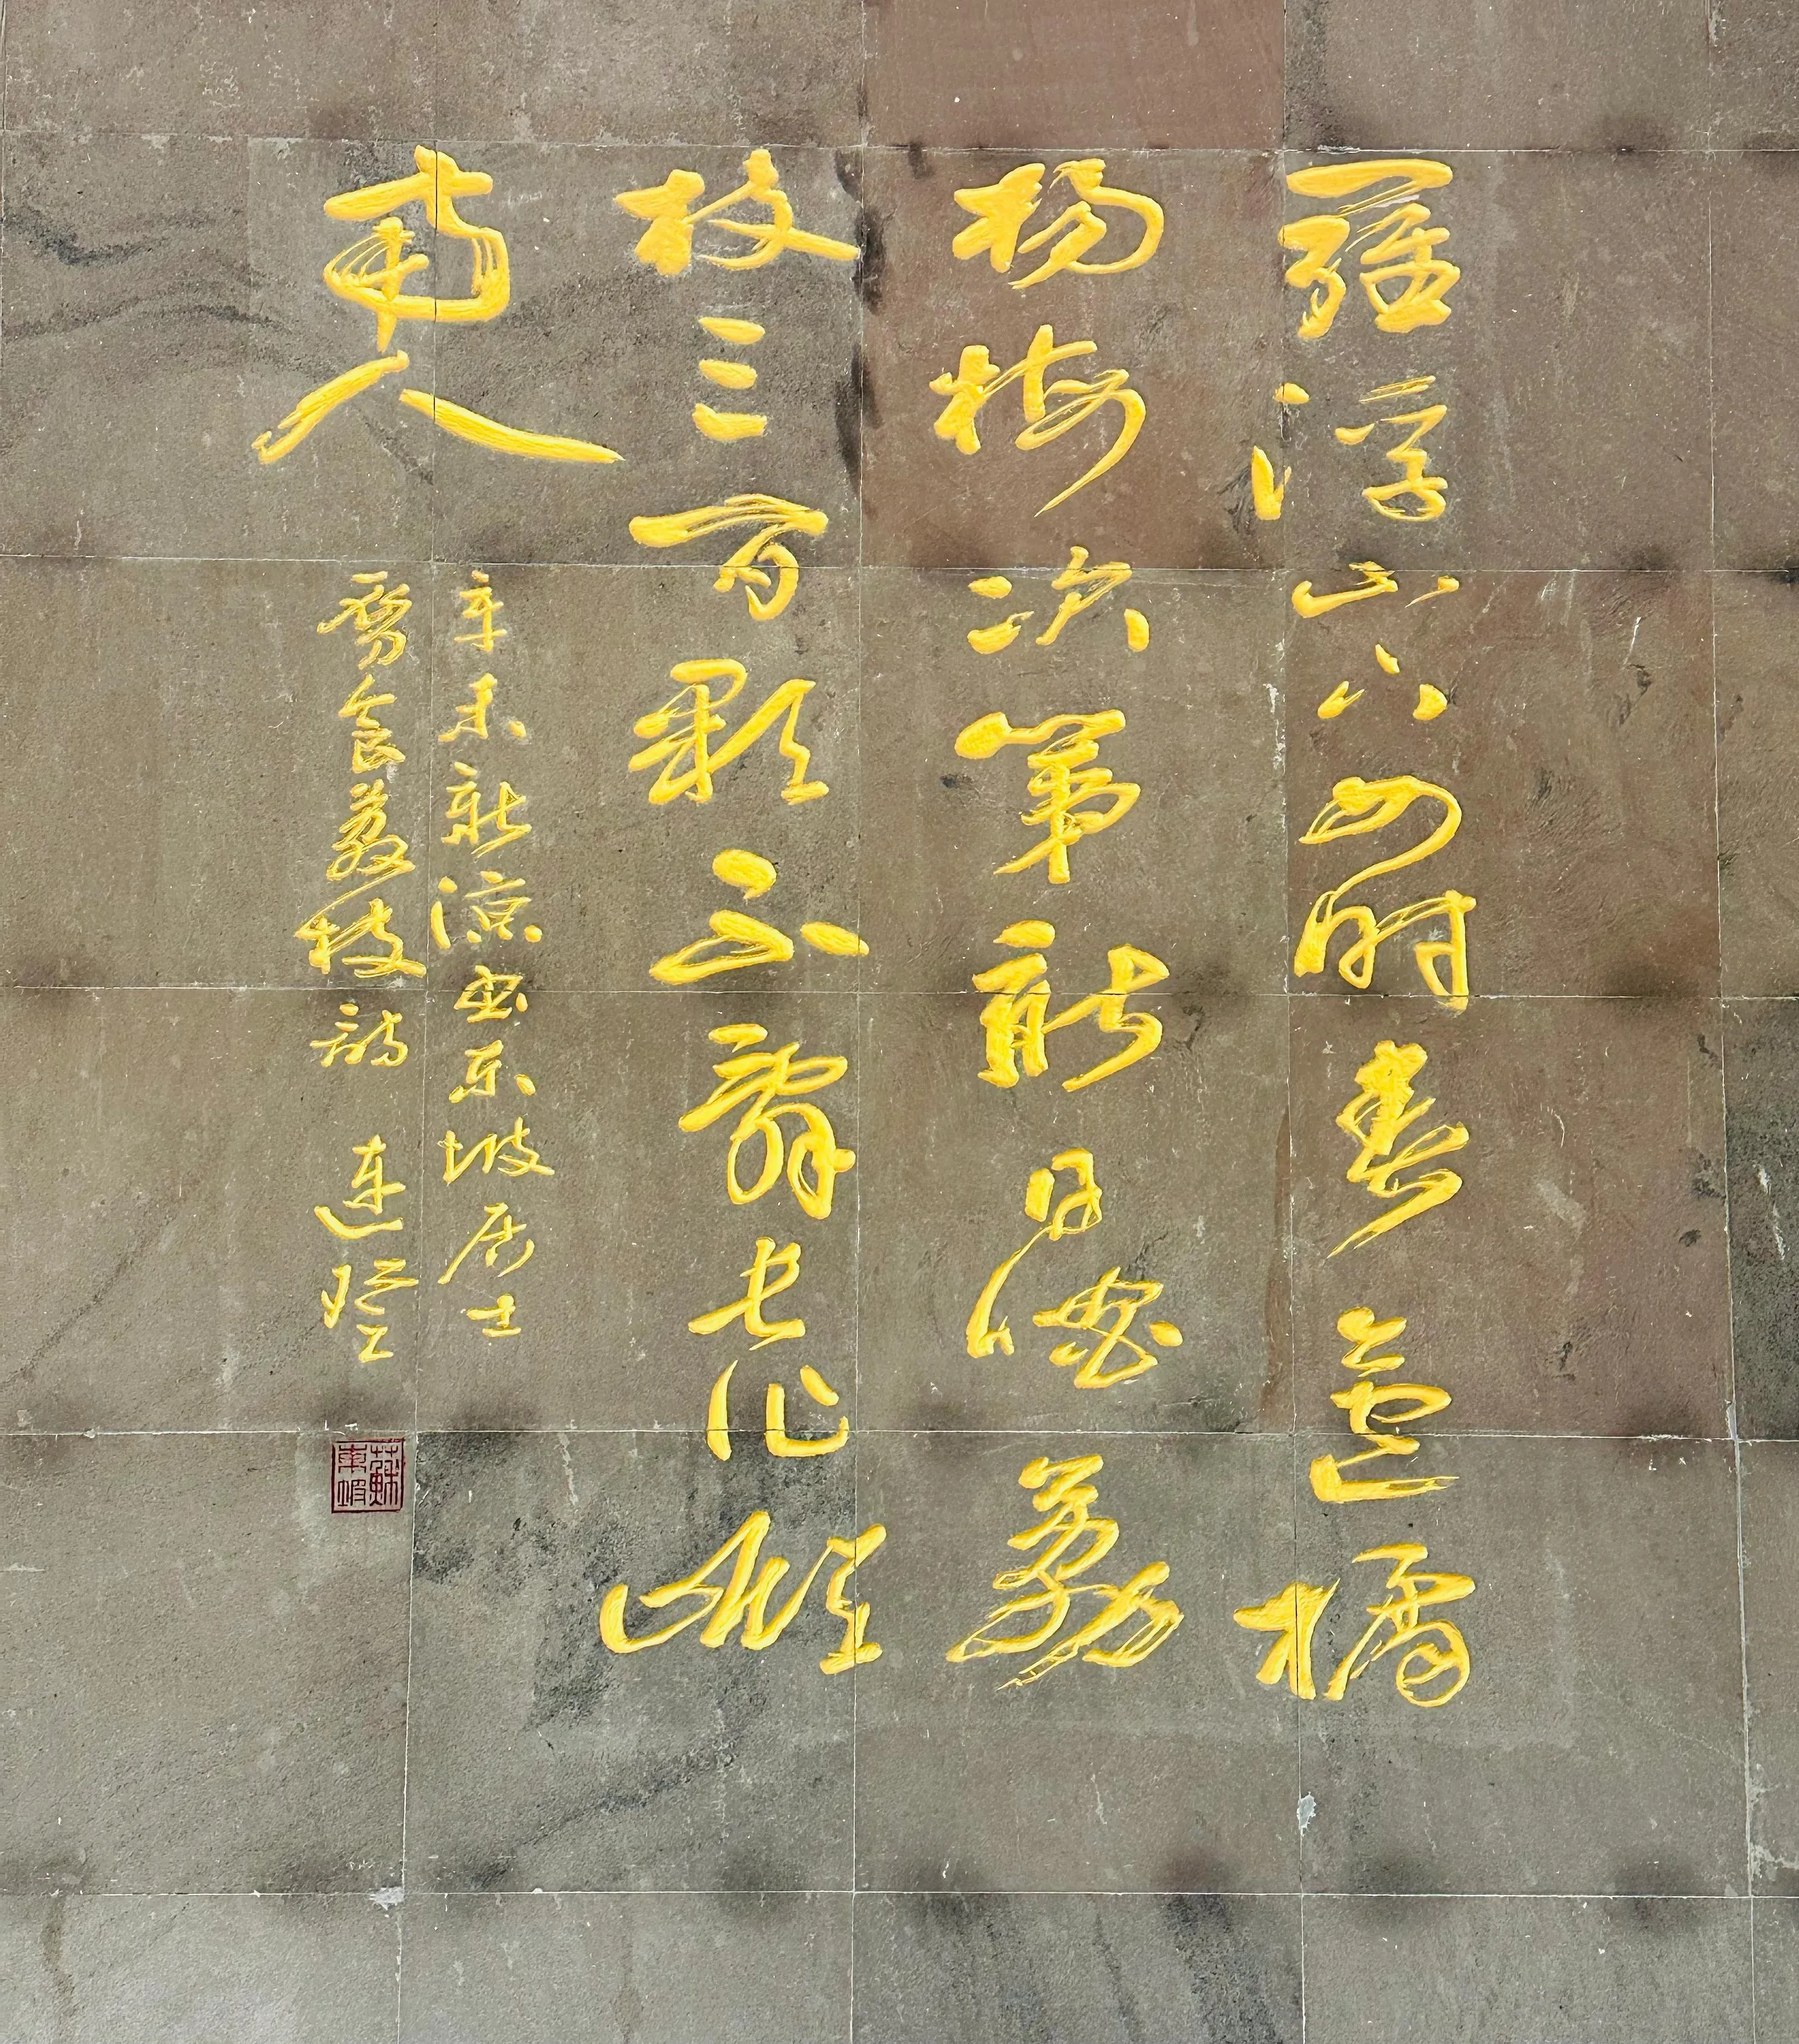 羅浮山下四時春盧橘
楊梅次第新日啖荔
枝三百顆不辭長作嶺
南人
辛未新涼書東坡居士
食荔枝詩 連
蘇東坡